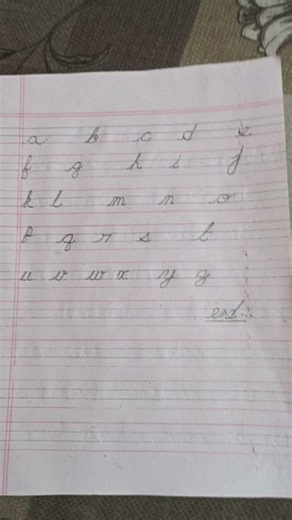 a b c d e
f g h i j
k l m n o
p q r s t
u v w x y z
end: